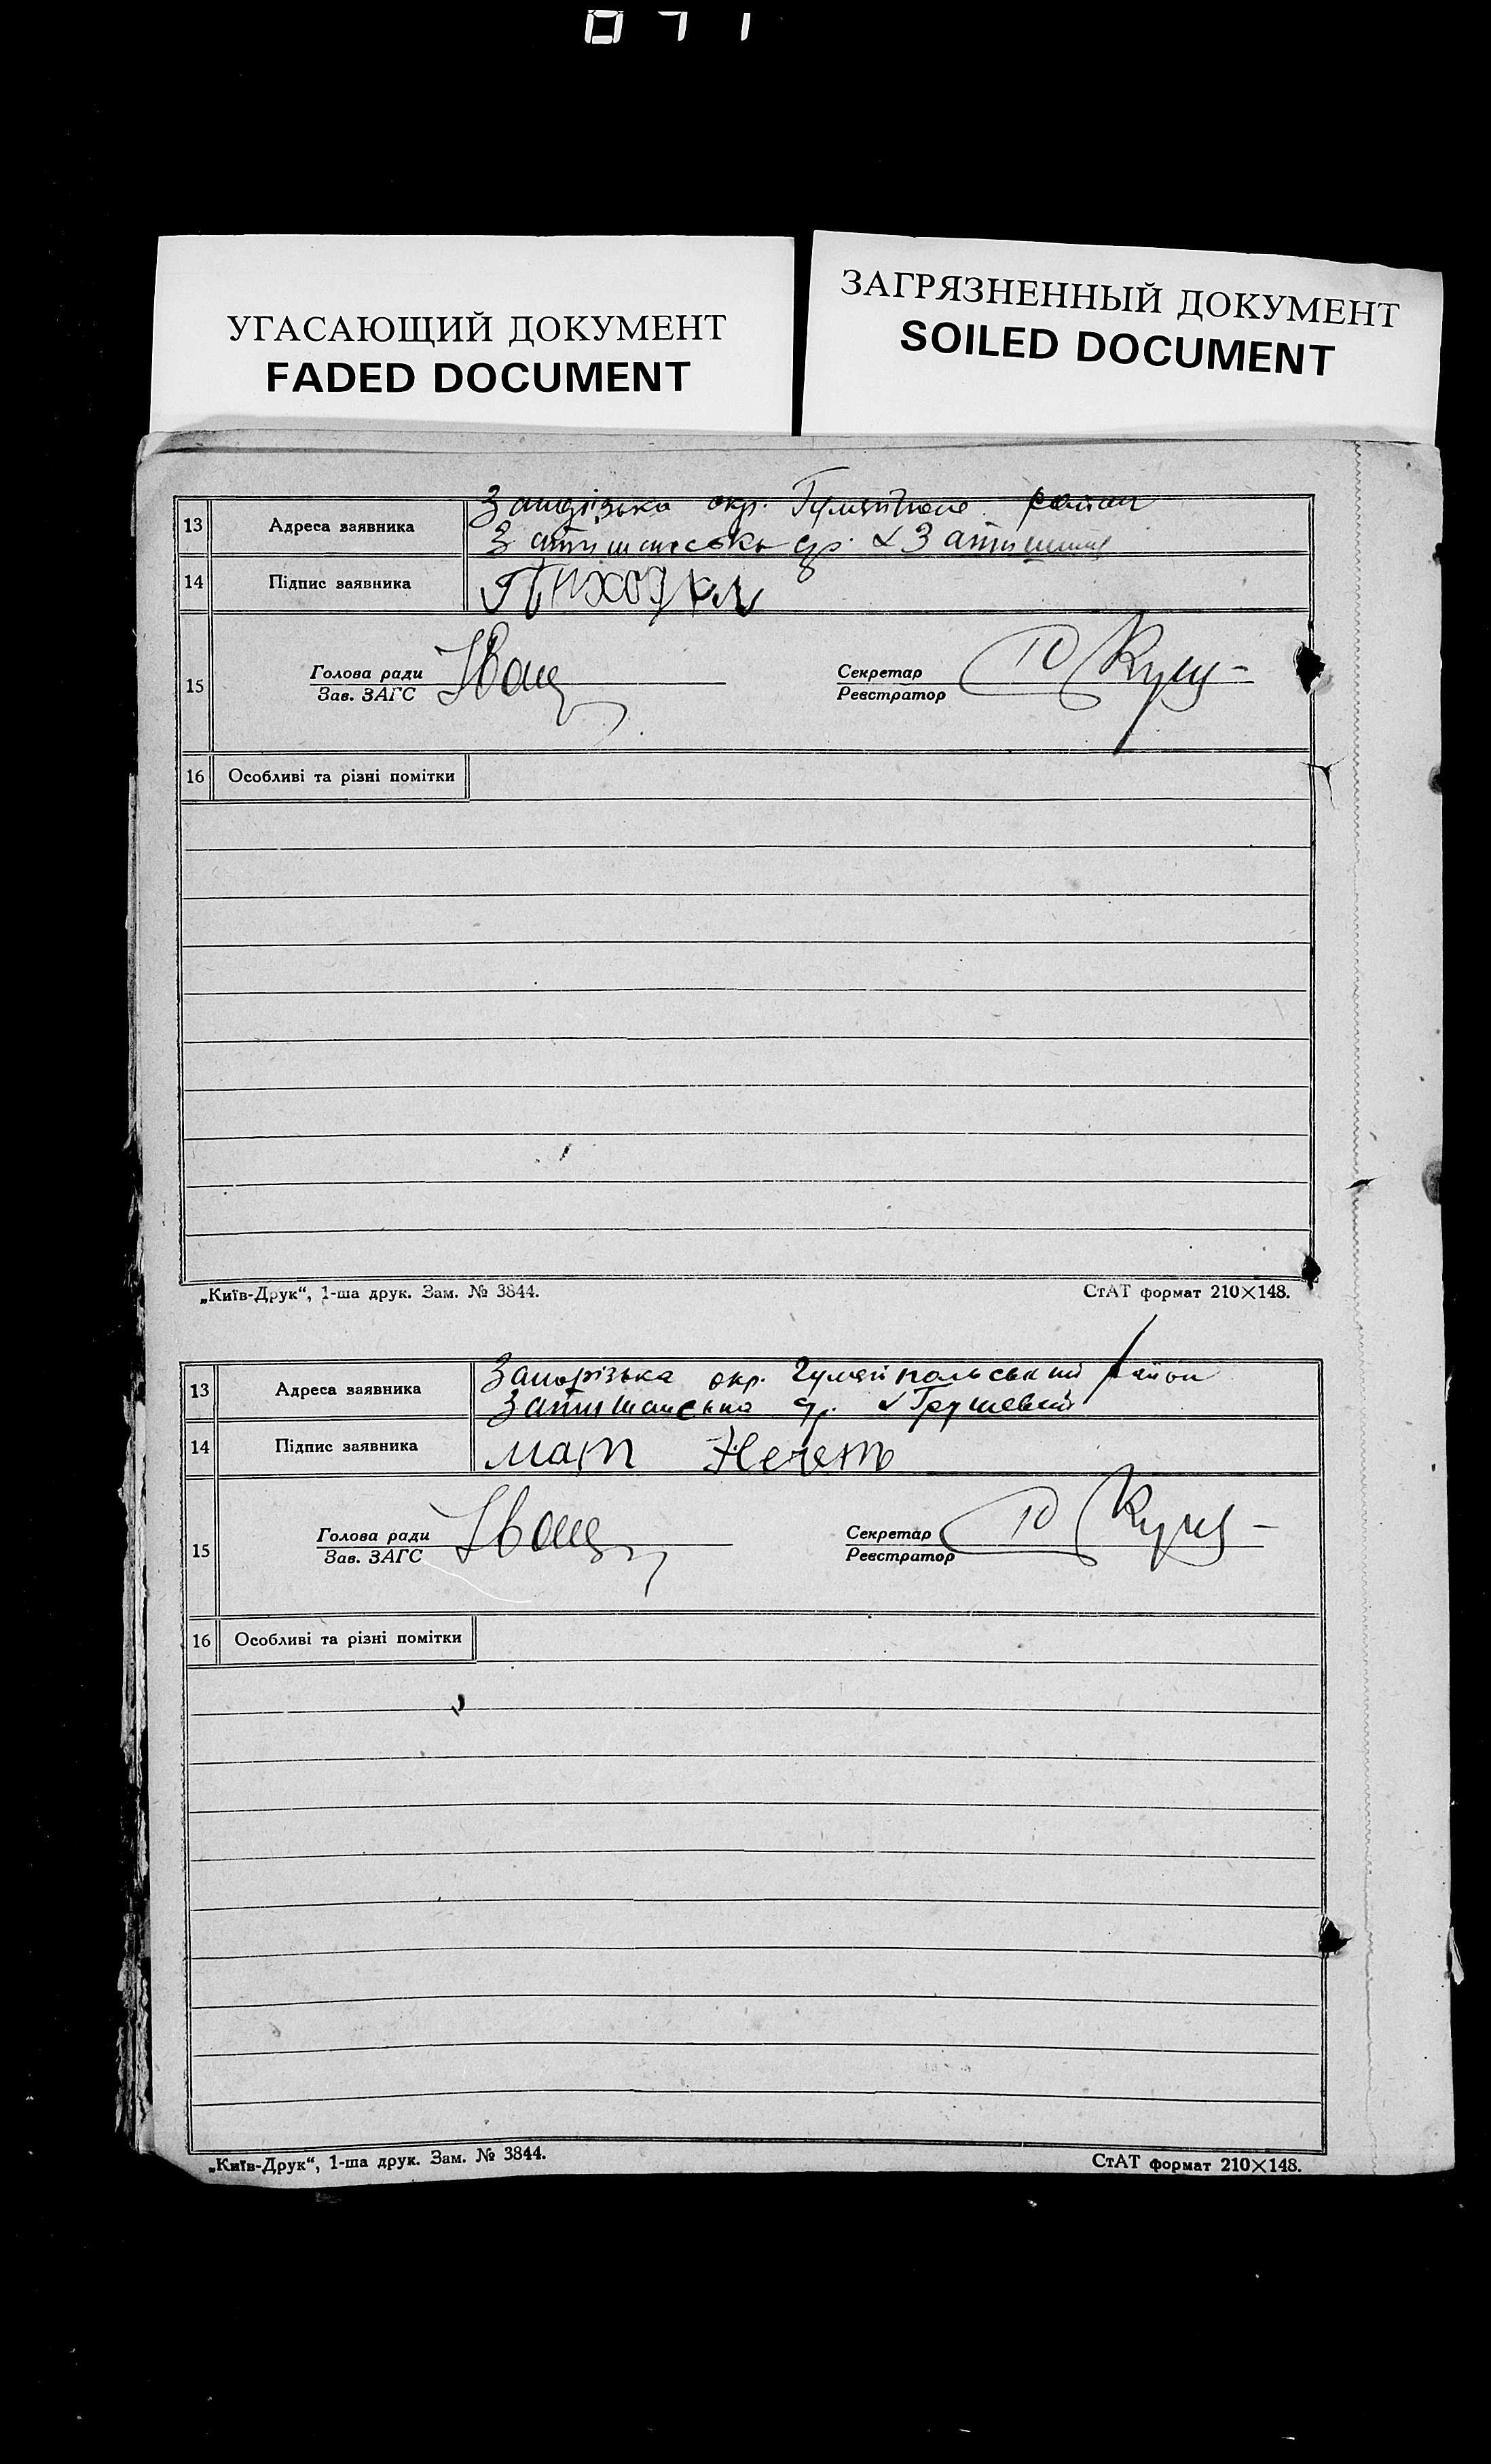 071
УГАСАЮЩИЙ ДОКУМЕНТ
FADED DOCUMENT
ЗАГРЯЗНЕННЫЙ ДОКУМЕНТ
SOILED DOCUMENT
13 Адреса заявника Запорізька окр. район
Затишанська
14 Підпис заявника
15 Голова ради Іващ Секретар
Зав. ЗАГС Реєстратор
16 Особливі та різні помітки
„Київ-Друк“, 1-ша друк. Зам. № 3844. СтАТ формат 210×148.
13 Адреса заявника Запорізька окр. Гуляйпольський район
Затишанська
14 Підпис заявника мат
15 Голова ради Іващ Секретар
Зав. ЗАГС Реєстратор
16 Особливі та різні помітки
„Київ-Друк“, 1-ша друк. Зам. № 3844. СтАТ формат 210×148.